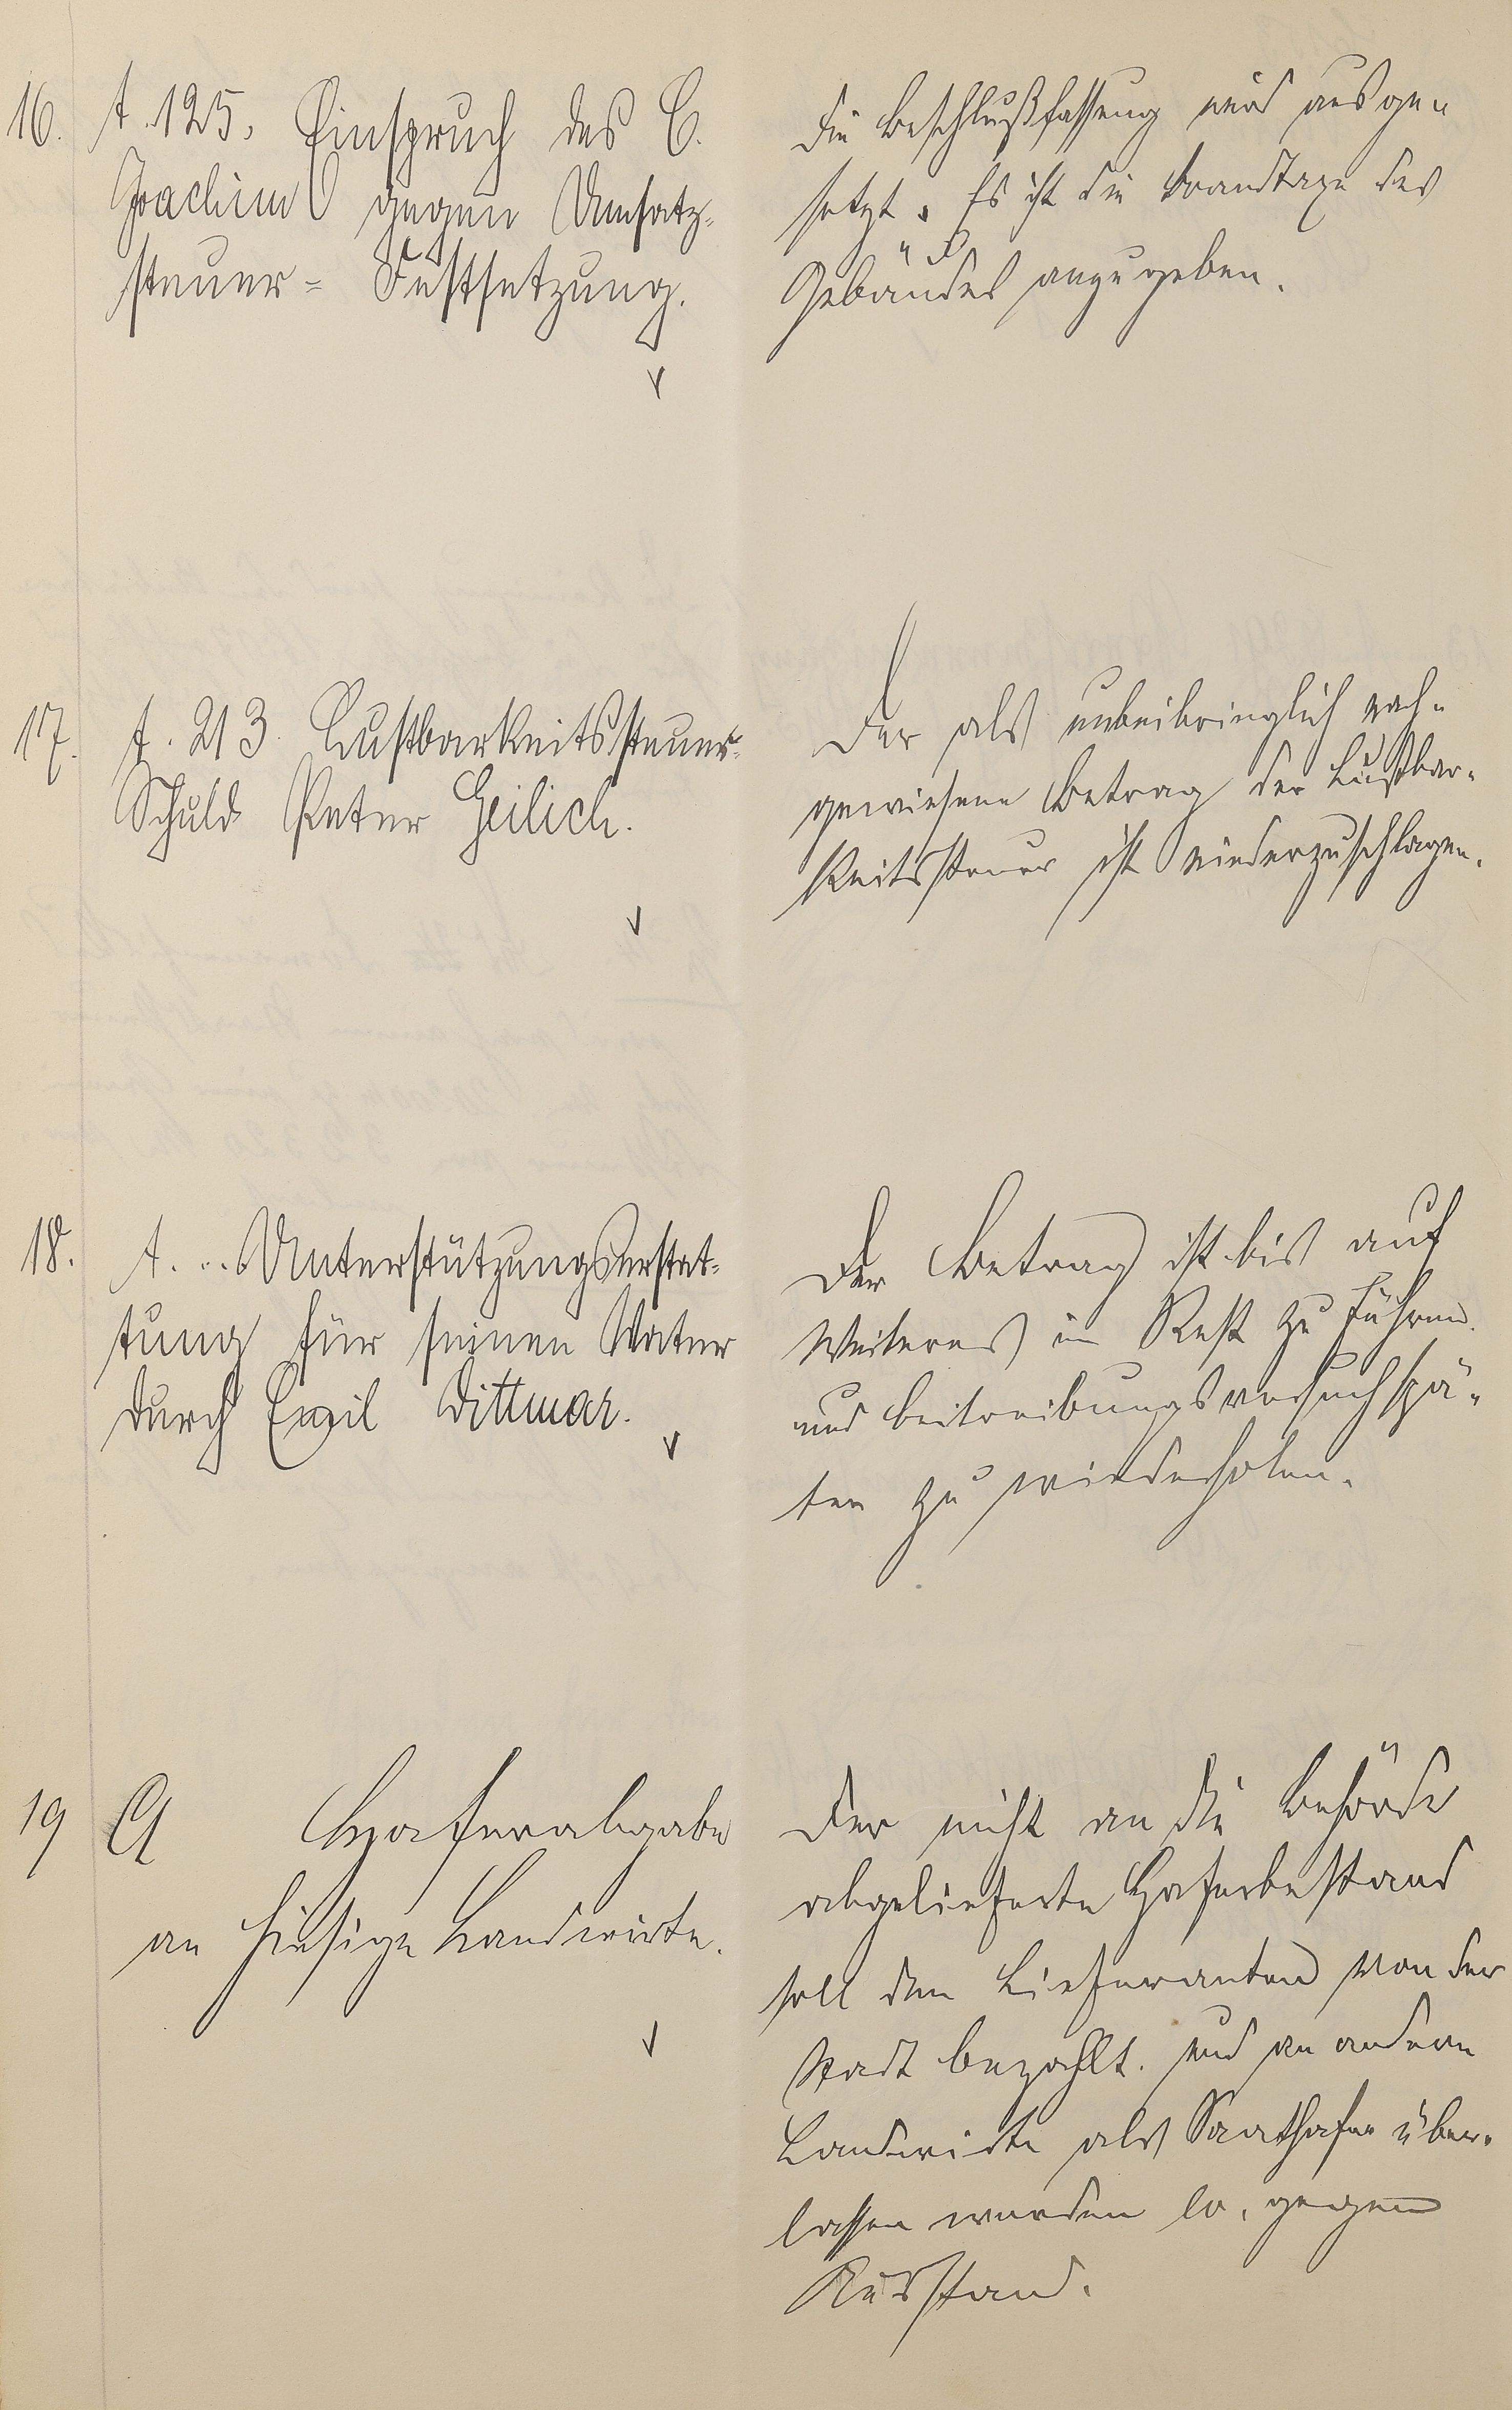 16. A. 125. Einspruch des C.
Joachim gegen Umsatz-
steuer-Festsetzung.
Die Beschlußfassung wird ausge-
setzt. Es ist die Brandtaxe des
Gebäudes anzugeben.
17. A. 213. Lustbarkeitssteuer-
Schuld Peter Geilich.
Der als unbeibringlich nach-
gewiesene Betrag der Lustbar-
keitssteuer ist niederzuschlagen.
18. A. ... Unterstützungserstat-
tung für seinen Vater
durch Emil Dittmar.
Der Betrag ist bis auf
Weiteres in Rest zu führen
und Beitreibungsversuch spä-
ter zu wiederholen.
19 A Haferabgabe
an hiesige Landwirte.
Der nicht an die Behörde
abgelieferte Haferbestand
soll den Lieferanten von der
Stadt bezahlt. und an andere
Landwirte als Saathafer über-
lassen werden gegen